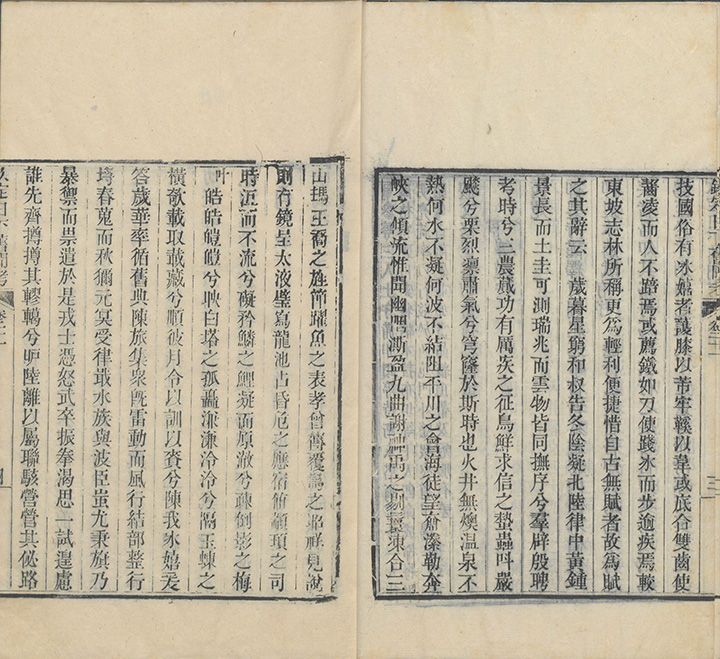 技國俗有冰嬉者護膝以芾牢鞵以韋或底合雙齒使
凌而人不踣焉或薦鐵如刀使踐冰而步逾疾焉較
東坡志林所稱更爲輕利便捷惜自古無賦者故爲賦
之其辭云 歲暮星窮和叔告冬陰凝北陸律中黃鍾
景長而土圭可測瑞兆而雲物皆同撫序兮羣辟殷聘
考時兮三農蕆功有厲疾之征鳥鮮求信之蟄蟲叫嚴
飈兮栗烈凜肅氣兮穹窿於斯時也火井無燠温泉不
熱何水不凝何波不結阻平川之㑹海徒望倉漭勒奔
峽之傾流惟聞幽咽澌盈九曲謝神禹之剔凍合三
山瑪王裔之旌節躍魚之表孝曾傳覆之昭祥見說
則有鏡呈太液璧寫龍池占昏危之應宿備顓頊之司
時沍而不流兮礙矜鱗之鯉凝而原澂兮疎創影之梅
叶皓皓皚皚兮映白塔之孤矗溓溓泠泠兮隅玉蝀之
橫欹載取載藏兮順彼月令以訓以賚兮陳我冰嬉爰
答歲華率循舊典陳旅集衆旣雷動而風行結部整行
埓春蒐而秋獮元冥受律戢水族與波臣蚩尤秉旗乃
暴禦而祟遣於是戎士憑怒武卒振拳渴思一試遑慮
誰先齊撙撙其轇轕兮陸離以屬聯駭營營其佖路